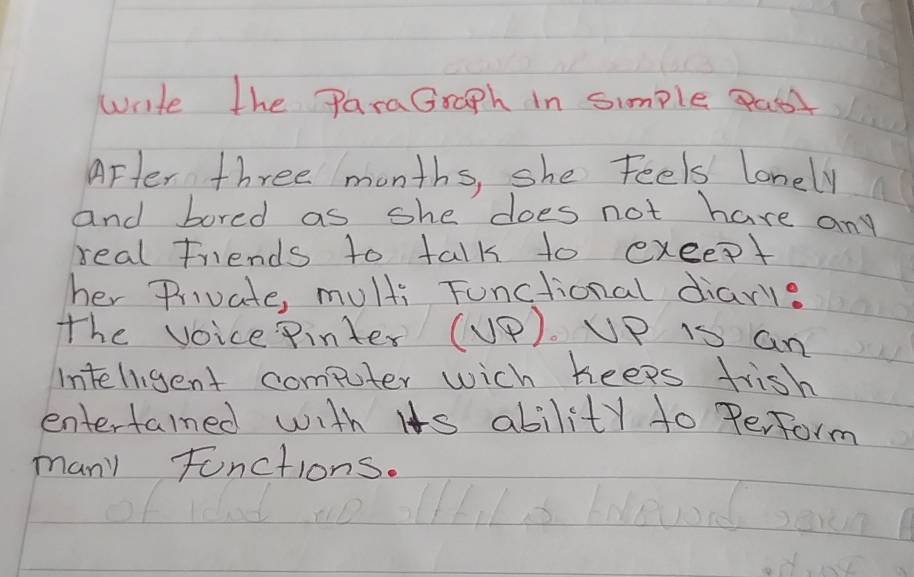 Write the ParaGraph in simple Past
AFter three months, she Feels lonely
and bored as she does not have any
real Friends to talk to except
her Private, multi Functional diary:
the voice Pinter (VP). VP is an
intelligent computer wich keeps trish
entertained with its ability to PerForm
many Functions.